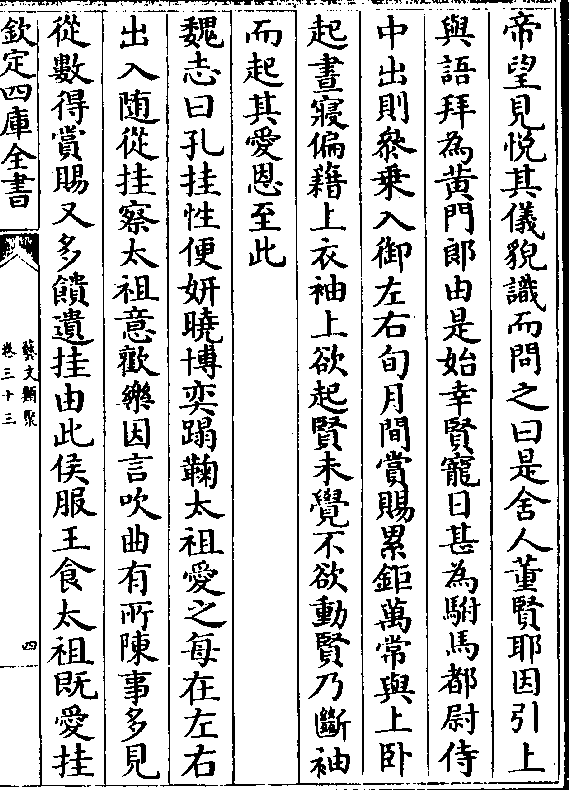 帝望見悅其儀貌識而問之曰是舍人董賢耶因引上
與語拜為黄門郎由是始幸賢寵日甚為駙馬都尉侍
中出則叅乗入御左右旬月間賞賜累鉅萬常與上卧
起晝寢偏藉上衣袖上欲起賢未覺不欲動賢乃斷袖
而起其愛恩至此
魏志曰孔挂性便妍曉博奕蹋鞠太祖愛之每在左右
出入随從挂察太祖意歡樂因言吹曲有所陳事多見
從數得賞賜又多饋遺挂由此侯服王食太祖既愛挂
欽定四庫全書
藝文類聚
卷三十三
四